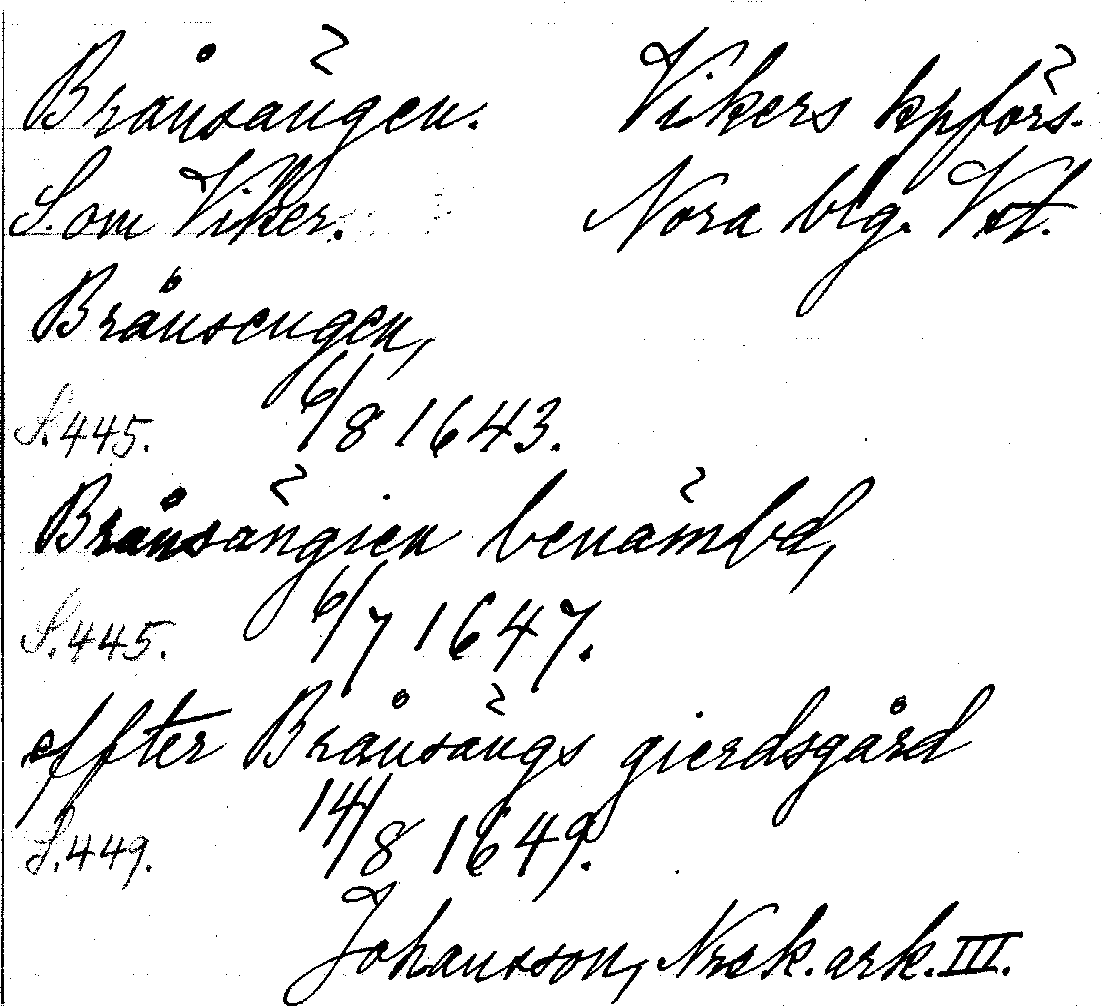 Brånsängen. Vikers kpförs.
S. om Viker. Nora blg. Vstm.
Brånsengen,
S. 445. 6/8 1643.
Brånsängien benämbd,
S. 445. 6/7 1647.
effter Brånsängs gierdsgård
S. 449. 14/8 1649.
Johansson, Nrsk. ark. III.